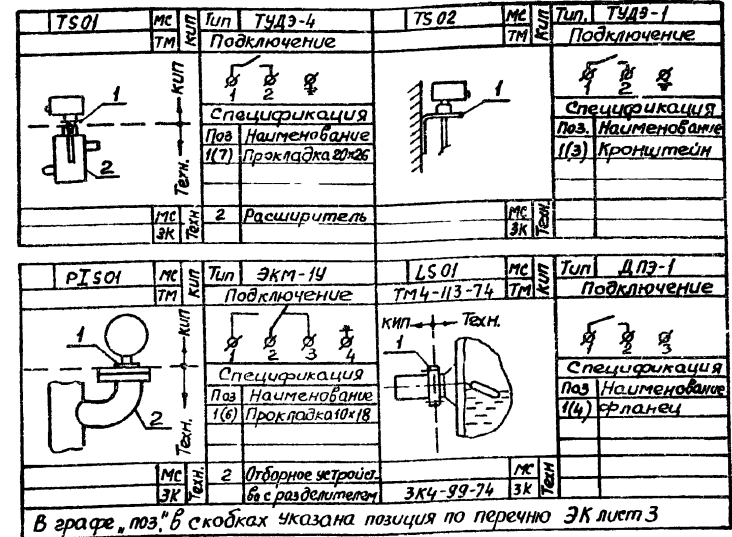 TS01 МС КИП Тип ТУДЭ-4
ТМ Подключение
1 2
КИП
Техн.
1
2
Спецификация
Поз Наименование
1(7) Прокладка 20×26
МС Техн 2 Расширитель
ЗК
TS02 МС КИП Тип. ТУДЭ-1
ТМ Подключение
1 2
1
Спецификация
Поз. Наименование
1(3) Кронштейн
МС Техн.
ЗК
PIS01 МС КИП Тип ЭКМ-1У
ТМ Подключение
1 2 3 4
КИП
Техн.
1
2
Спецификация
Поз Наименование
1(6) Прокладка 10×18
МС Техн. 2 Отборное устройст-
ЗК во с разделителем
LS01 МС КИП Тип ДПЭ-1
ТМ4-113-74 ТМ Подключение
КИП Техн.
1
1 2 3
Спецификация
Поз Наименование
1(4) Фланец
МС Техн
ЗК4-99-74 ЗК
В графе „поз." в скобках указана позиция по перечню ЭК лист 3